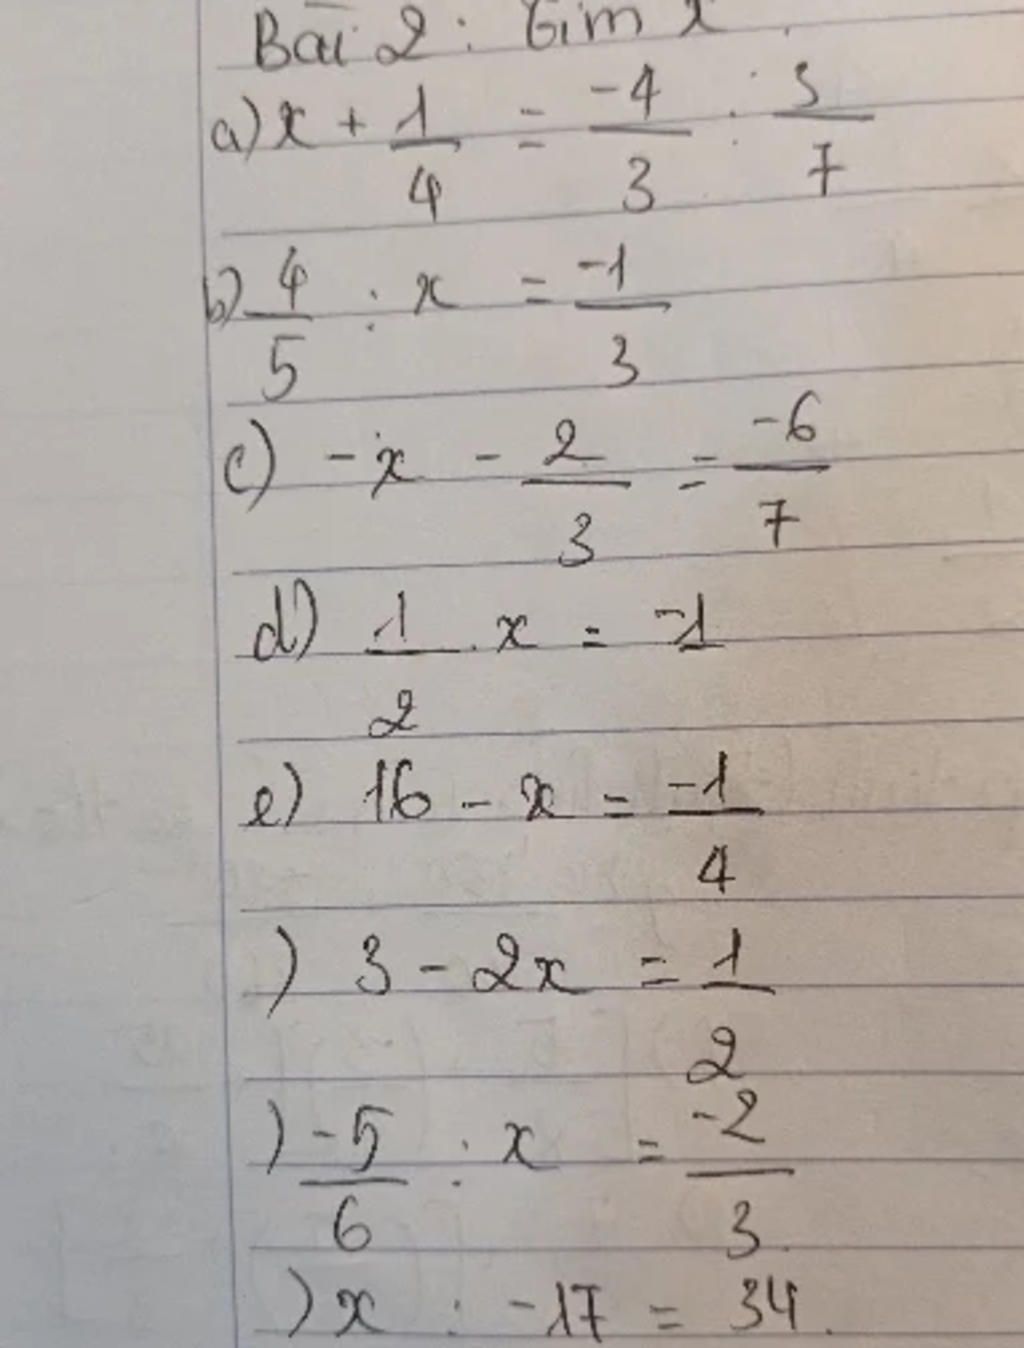 Bài 2: Tìm x.
a) x + 1/4 = -4/3 : 3/7
b) 4/5 : x = -1/3
c) -x - 2/3 = -6/7
d) 1/2 . x = -1
e) 16 - x = -1/4
) 3 - 2x = 1/2
) -5/6 : x = -2/3
) x : -17 = 34.